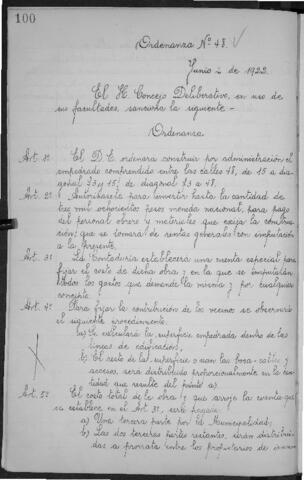 100
Ordenanza Nº 48.
Junio 2 de 1922.
El H. Concejo Deliberativo, en uso de
sus facultades, sanciona la siguiente -
Ordenanza
Art. 1º. El D. E. ordenara construir por administración el
empedrado comprendido entre las calles 48, de 15 a dia-
gonal 73 y 15, de diagonal 73 a 48.
Art. 2º Autorízasela para invertir hasta la cantidad de
tres mil ochocientos pesos moneda nacional, para pago
del personal obrero y materiales que exija la
que se tomará de rentas generales con imputación
a la presente.
Art. 3º La Contaduría establecerá una cuenta especial para
fijar el costo de dicha obra y en la que se imputarán
todos los gastos que demande la misma y por cualquier
concepto.
Art. 4º Para fijar la contribución de los vecinos se observará
el siguiente procedimiento.
a) Se calculará la superficie empedrada dentro de las
lineas de edificación,
b) El resto de la superficie o sean las boca-calles y
accesos, será distribuido proporcionalmente en la can-
tidad que resulte del punto a).
Art. 5º El costo total de la obra y que arroje la cuenta que
se establece en el Art. 3º, será pagado:
a) Una tercera parte por la Municipalidad;
b) Las dos terceras partes restantes, serán distribuí-
das a prorrata entre los propietarios de